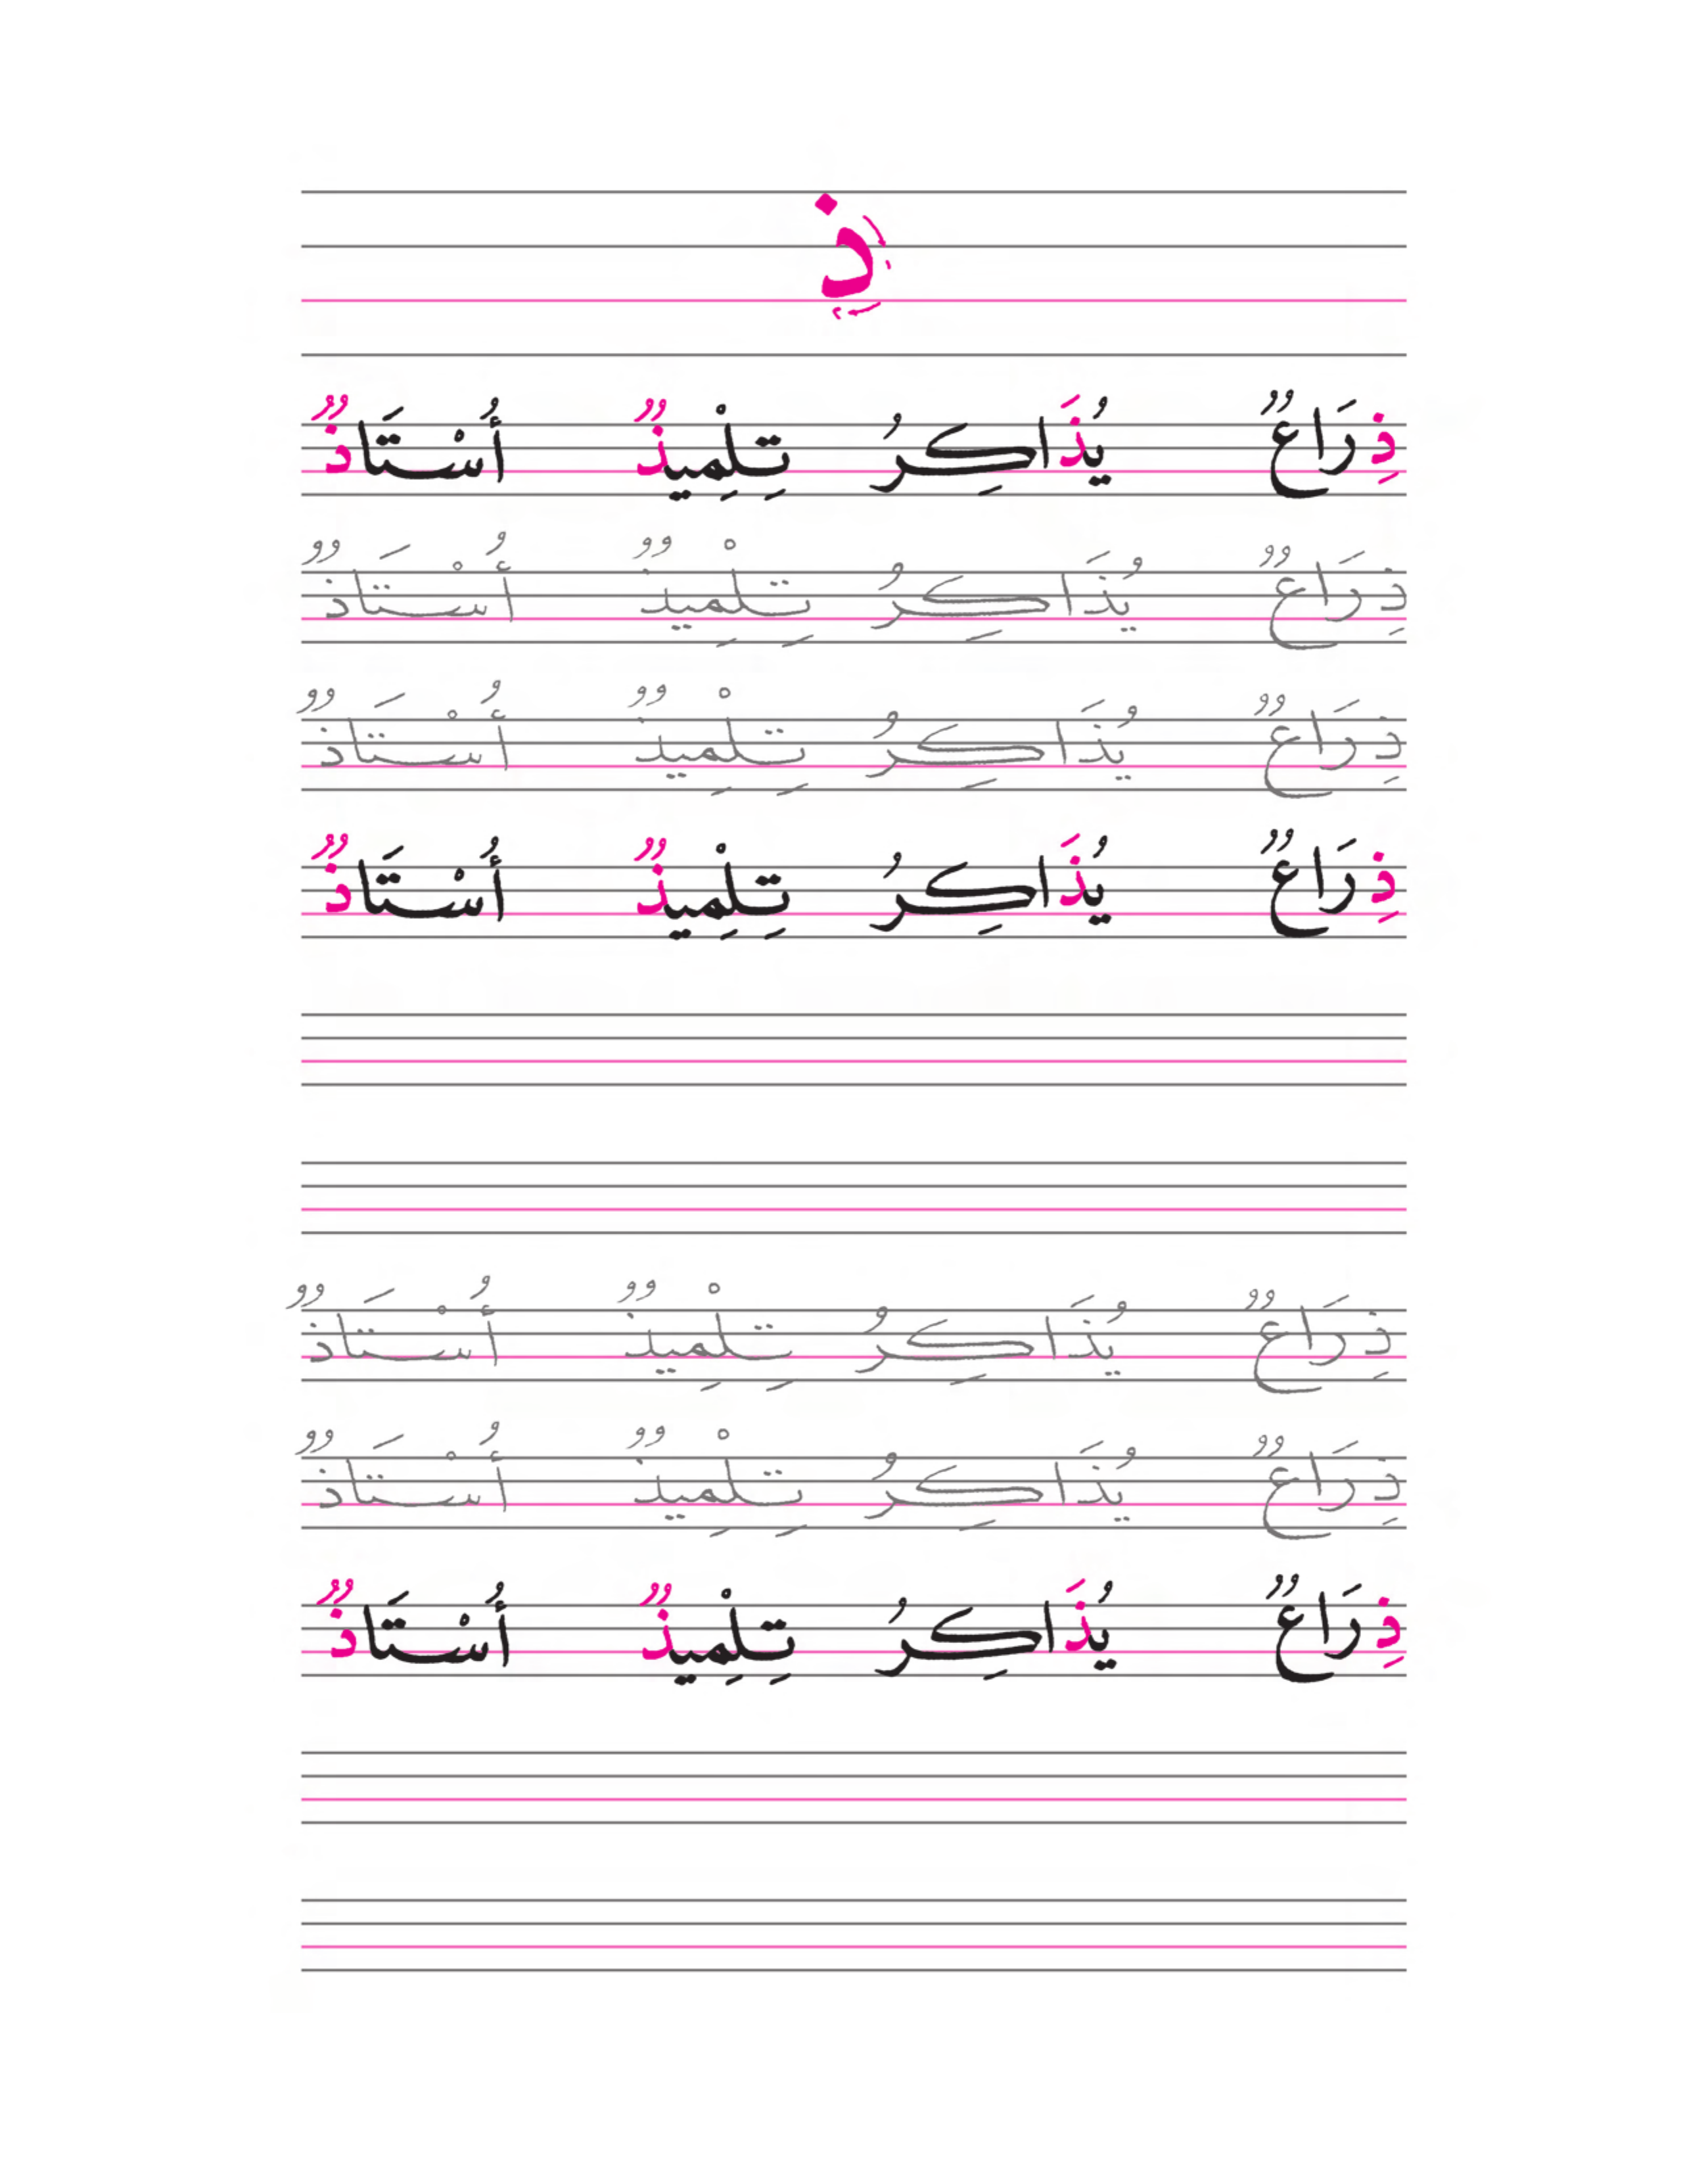 ذ
ذِرَاعٌ يُذَاكِرُ تِلْمِيذٌ أُسْتَاذٌ
ذِرَاعٌ يُذَاكِرُ تِلْمِيذٌ أُسْتَاذٌ
ذِرَاعٌ يُذَاكِرُ تِلْمِيذٌ أُسْتَاذٌ
ذِرَاعٌ يُذَاكِرُ تِلْمِيذٌ أُسْتَاذٌ
ذِرَاعٌ يُذَاكِرُ تِلْمِيذٌ أُسْتَاذٌ
ذِرَاعٌ يُذَاكِرُ تِلْمِيذٌ أُسْتَاذٌ
ذِرَاعٌ يُذَاكِرُ تِلْمِيذٌ أُسْتَاذٌ